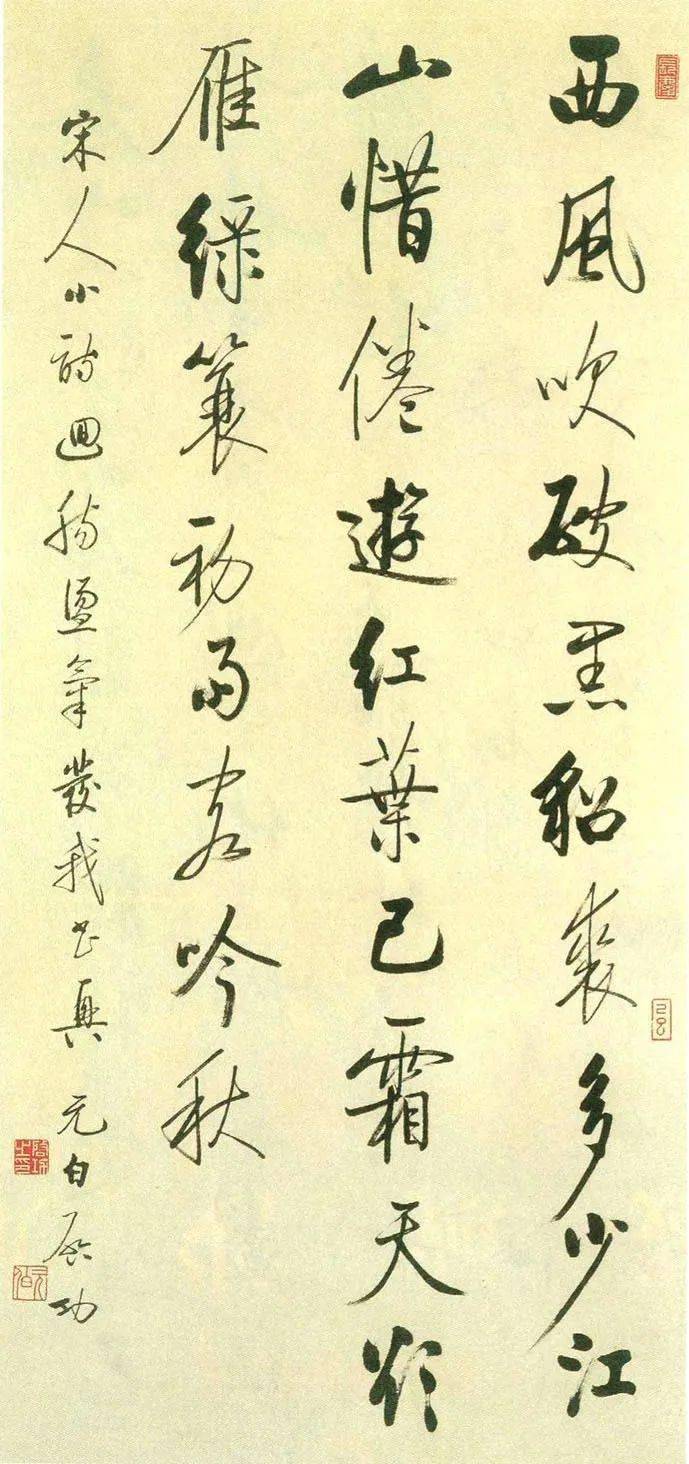 西風吹破黑貂裘多少江
山惜倦遊紅葉已霜天欲
雁綠簑初雨客吟秋
宋人小詩迴腸盪氣發我書興 元白啓功